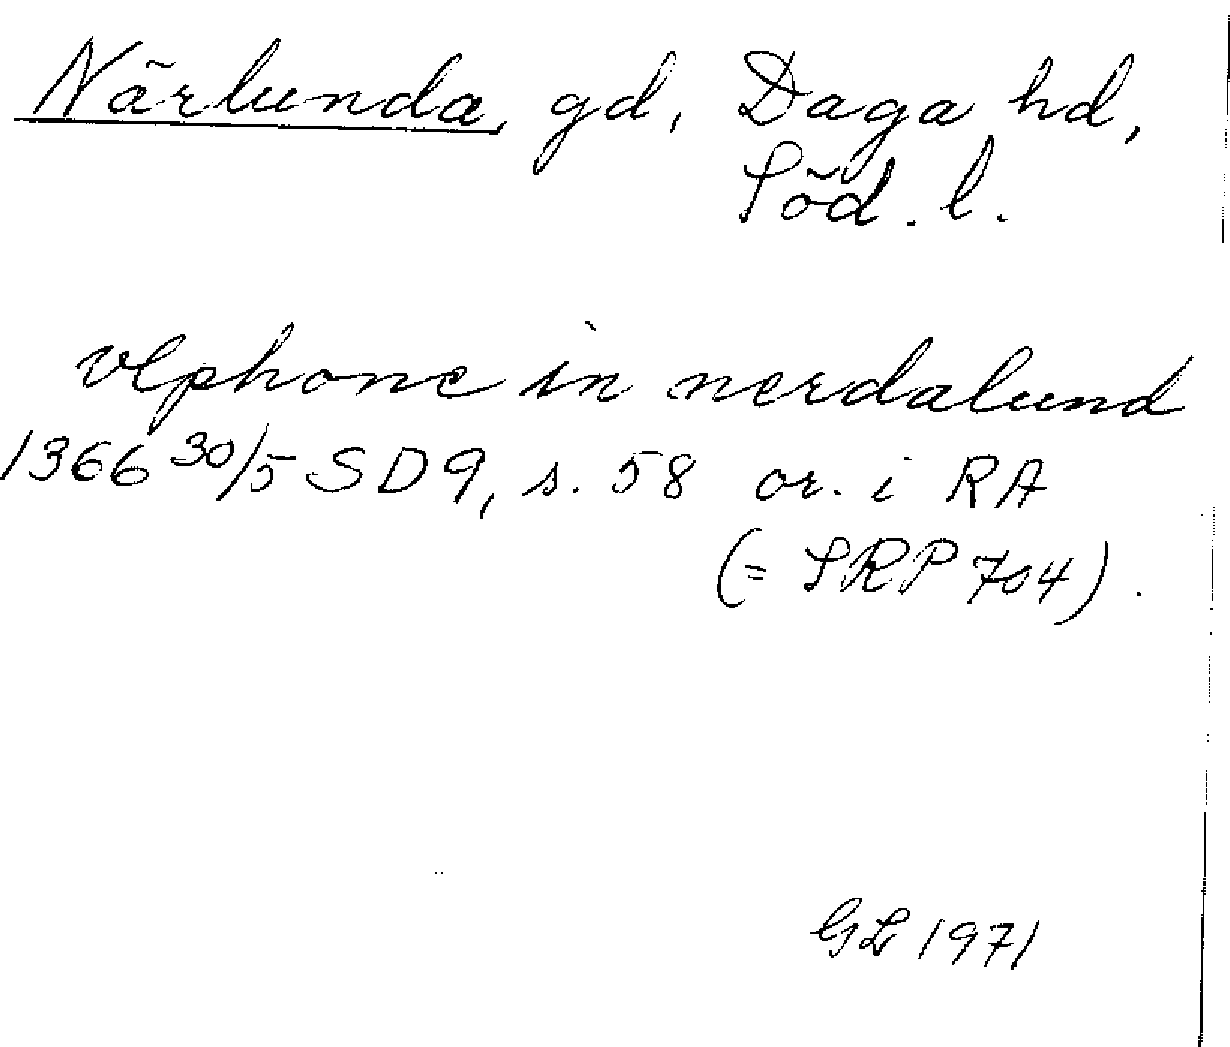 Närlunda, gd, Daga hd,
Söd. l.
vlphone in nerdalund
1366 30/5 SD9, s. 58 or. i RA
(= SRP 704).
GL 1971